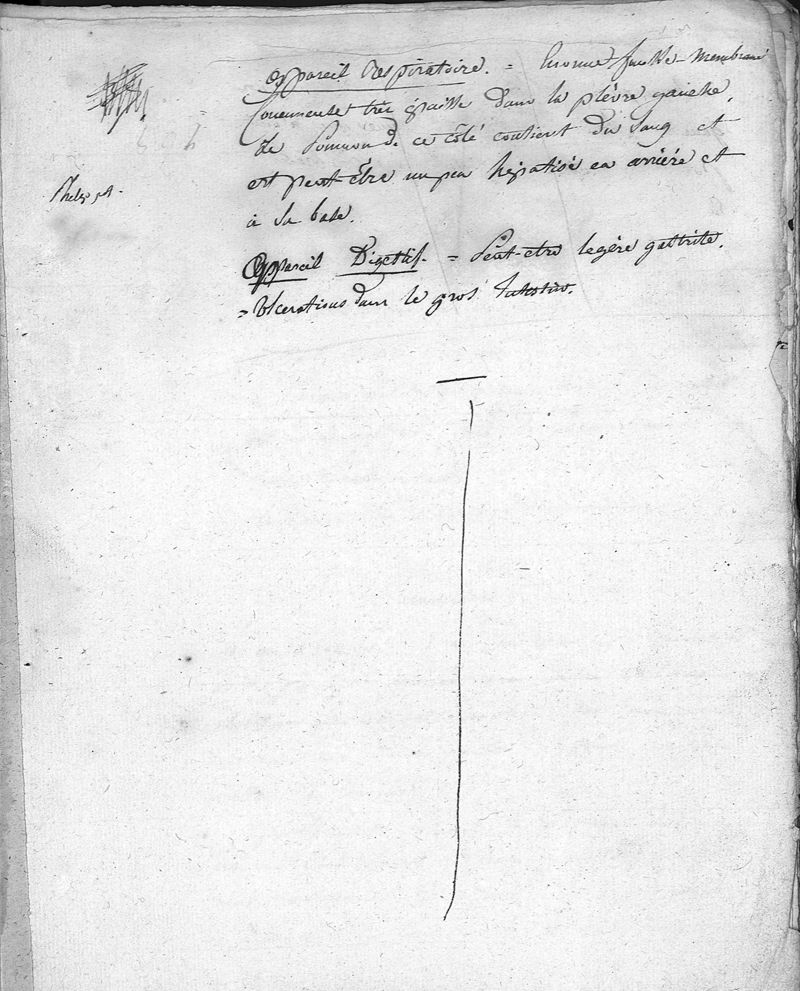 appareil Respiratoire. = Enorme fausse-Membrane
Couenneuse très épaisse dans la plèvre gauche.
Le Poumon de ce côté contient du sang et
est peut-être un peu hépatisé en arrière et
à sa base.
Appareil Digestif. = Peut-etre legère gastrite.
= Ulcerations dans le gros Intestin.